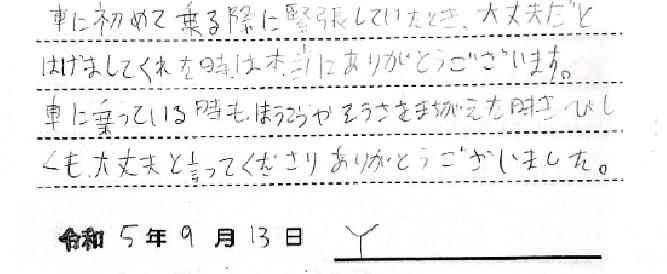 車に初めて乗る際に緊張していたとき、大丈夫だと
はげましてくれた時は本当にありがとうございます。
車に乗っている時も、ほうこうやそうさをまちがえた時き びし
くも、大丈夫と言ってくださりありがとうございました。
令和 5年 9月 13日 Y